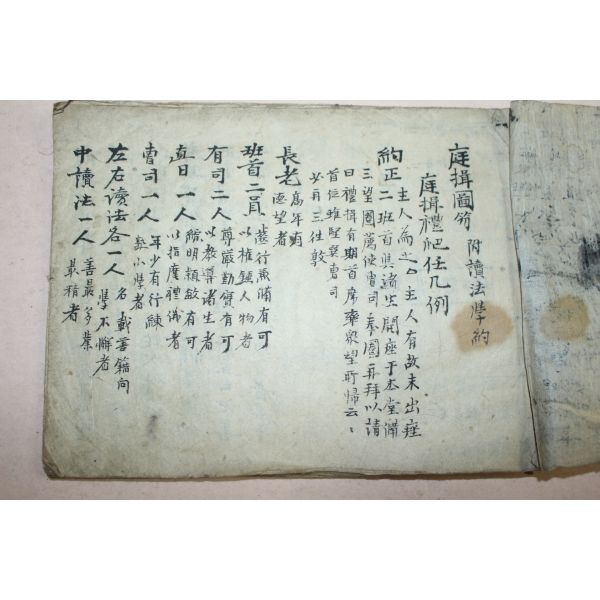 庭揖圖笏 附讀法學約
庭揖禮爬任凡例
約正 主人為之○主人有故未出座
二班首與諸生開座于本堂備
三望圈薦使曹司奉圈再拜以請
曰禮揖有期首席窠衆望所歸云々
首位雖堅莫曹司
必再三往敦
長老 高年有
德望者
班首二員 德行兼備有可
以權鎭人物者
有司二人 尊嚴勤實有可
以教導諸生者
直日一人 聰明穎敏有可
以指度禮儀者
曹司一人 年少有行練
熟小學者
左右讀法各一人 名載善籍向
學不懈者
中讀法一人 善最多業
最精者